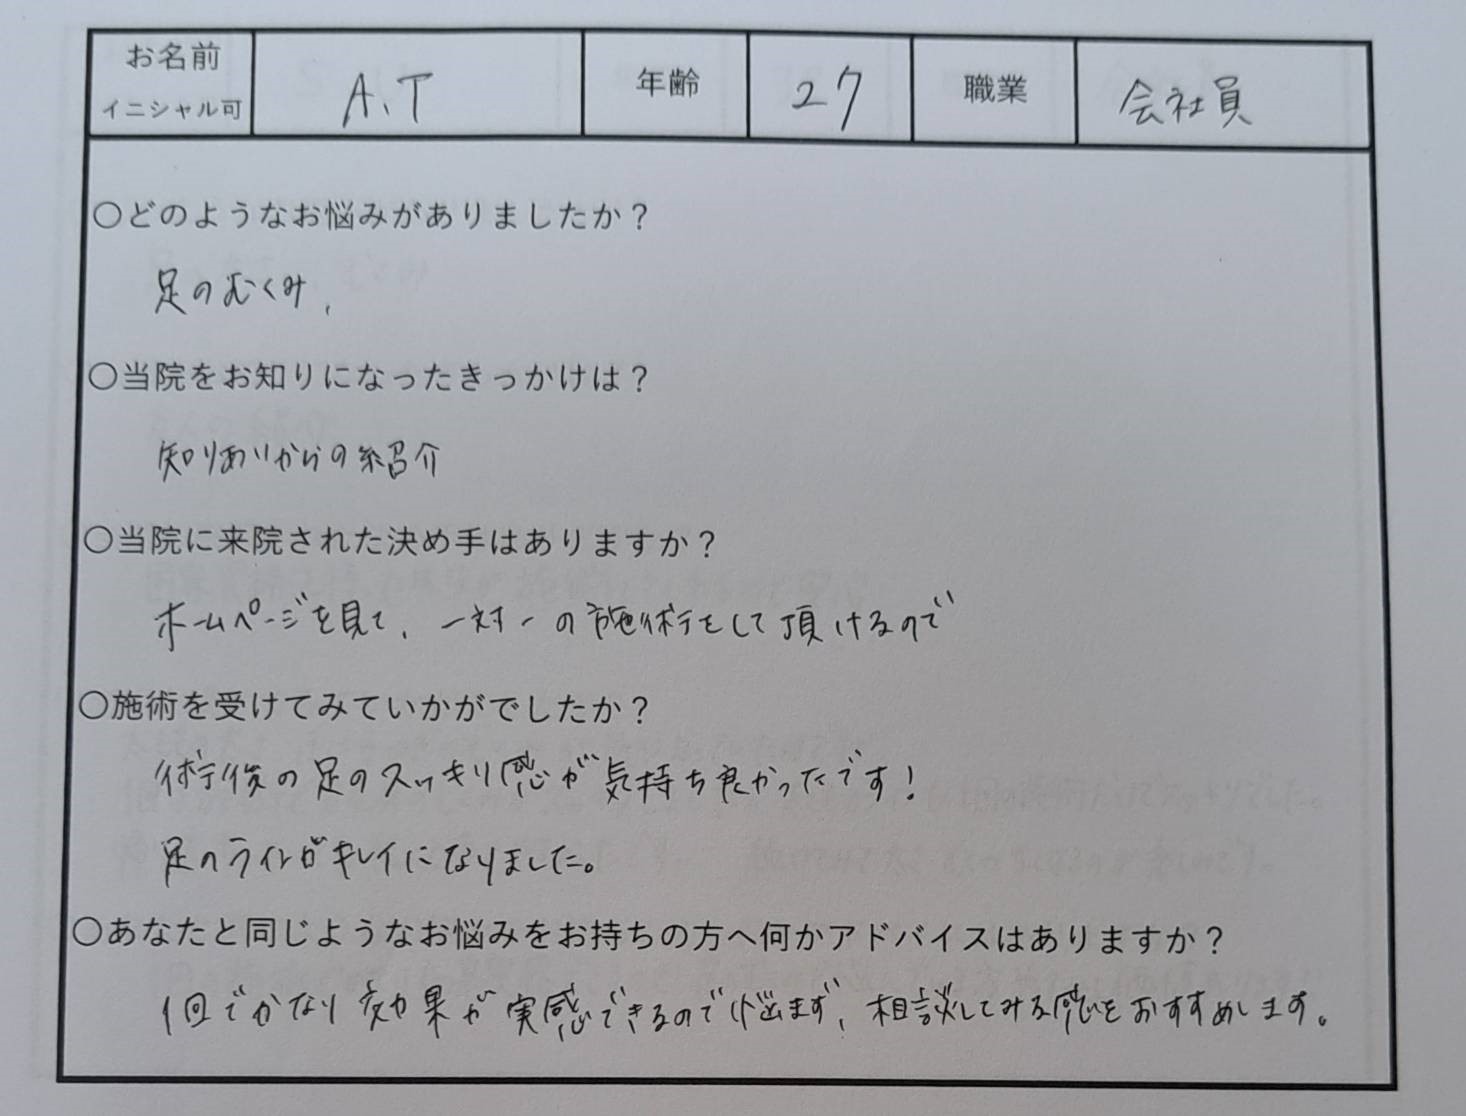 お名前 A.T 年齢 27 職業 会社員
イニシャル可
○どのようなお悩みがありましたか？
足のむくみ、
○当院をお知りになったきっかけは？
知りあいからの紹介
○当院に来院された決め手はありますか？
ホームページを見て、一対一の施術をして頂けるので
○施術を受けてみていかがでしたか？
術後の足のスッキリ感が気持ち良かったです！
足のラインがキレイになりました。
○あなたと同じようなお悩みをお持ちの方へ何かアドバイスはありますか？
1回でかなり効果が実感できるので 、相談してみる をおすすめします。